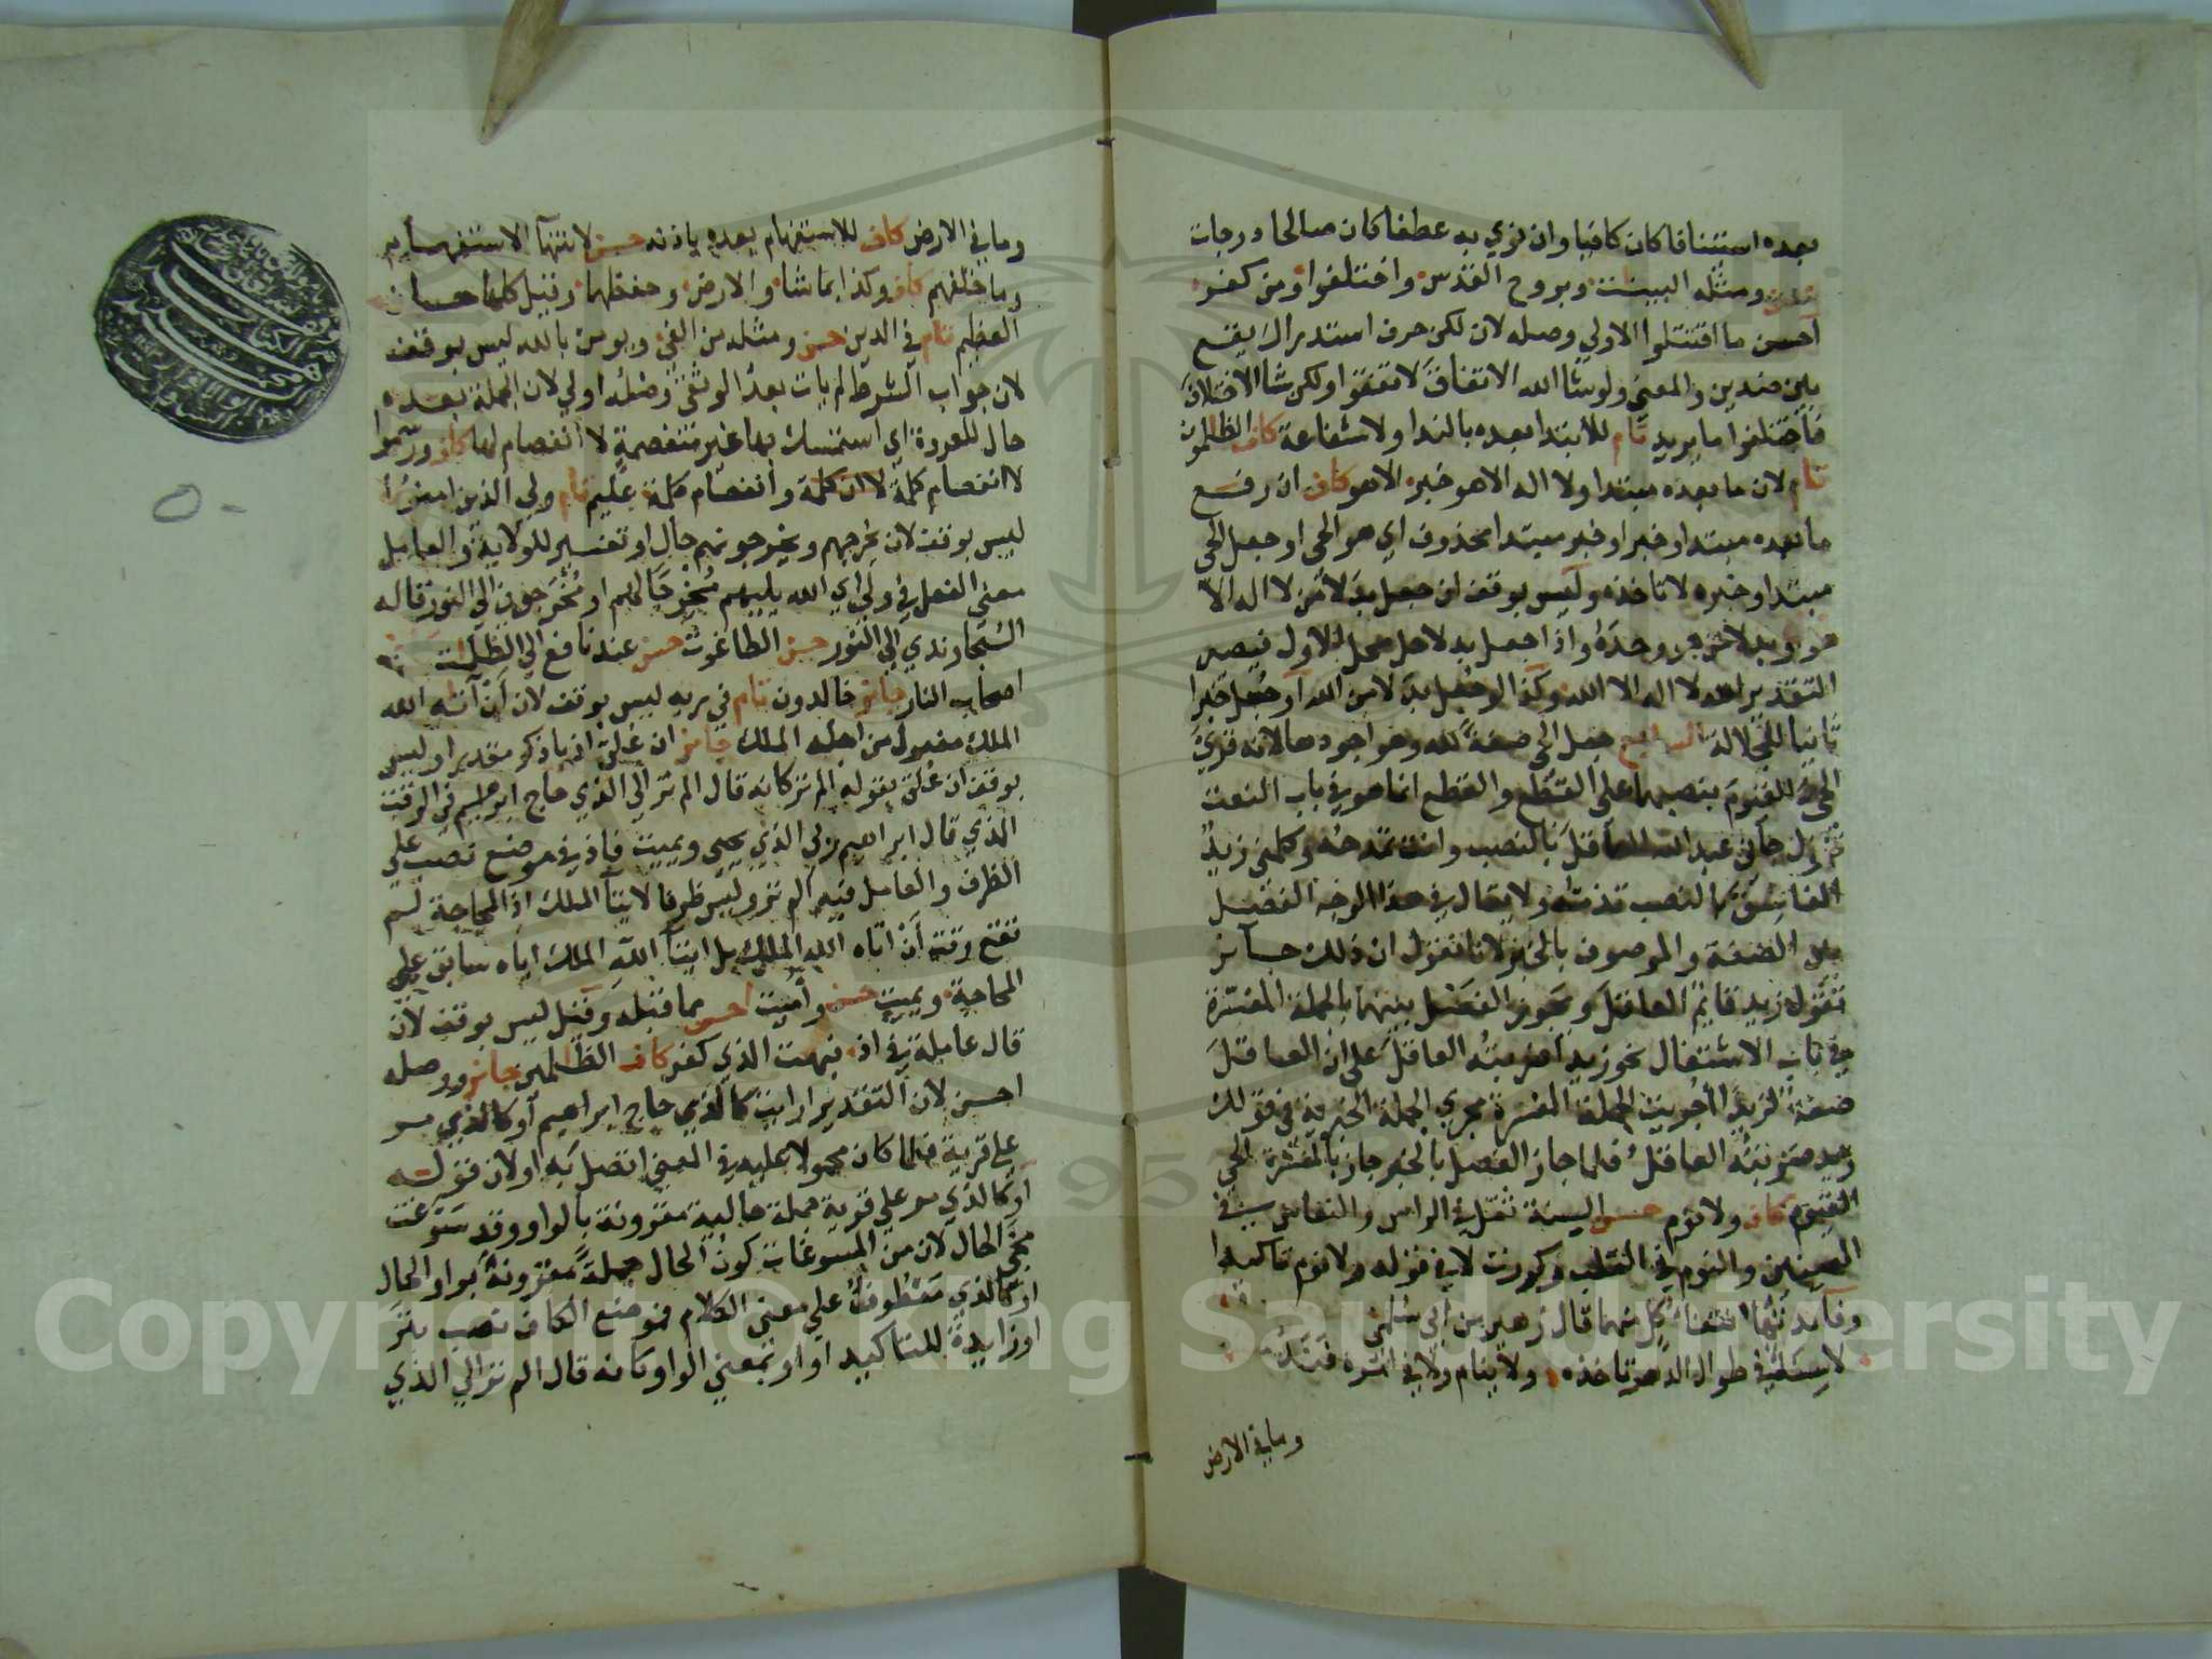 بعده استئنافا كان كافيا وان نوي به عطفا كان صالحا ودرجات
حسن ومثله البينت وبروح القدس واختلفوا ومن كفر
احسن ما اقتتلوا الاولي وصله لان لكن حرف استدراك يقع
بين ضدين والمعني ولو شا الله الاتفاق لاتفقوا ولكن شا الاختلاف
فاختلفوا ما يريد تام للابتدا بعده بالندا ولا شفاعة كاف الظلمون
تام لان ما بعده مبتدا ولا اله الا هو خبره الا هو كاف ان رفع
ما بعده مبتدا وخبرا او خبر مبتدا محذوف اي هو الحي او جعل الحي
مبتدا وخبره لا تاخذه وليس بوقف ان جعل بدلا من لا اله الا
هو او بدلا من هو وحده واذا جعل بدلا حل محل الاول فيصير
التقدير الله لا اله الا الله وكذا لو جعل بدلا من الله او جعل خبرا
ثانيا للجلالة الرابع جعل الحي صفة لله وهو اجودها لانه قري
الحي القيوم بنصبهما علي القطع والقطع انما هو في باب النعت
تقول جاني عبد الله العاقل بالنصب وانت تمدحه وكلمني زيد
الفاسق بالنصب تذمه ولا يقال في هذا الوجه الفصل
بين الصفة والموصوف بالخبر لانا نقول ان ذلك جائز
تقول زيد قايم العاقل ويجوز الفصل بينهما بالجملة المفسرة
في باب الاشتغال نحو زيدا ضربته العاقل علي ان العاقل
صفة لزيدا اجريت الجملة المفسرة مجري الجملة الخبرية في قولك
زيد ضربته العاقل فلما جاز الفصل بالخبر جاز بالمفسرة الحي
القيوم كاف ولا نوم حسن السنة ثقل في الراس والنعاس في
العينين والنوم في القلب وكررت لا في قوله ولا نوم تاكيدا
وفائدتها انتفاء كل منهما قال زهير بن ابي سلمي
لا سنة في طوال الدهر تاخذه ولا ينام ولا في امره فند
وما في الارض
وما في الارض كاف للاستفهام بعده باذنه حسن لانتهاء الاستفهام
وما خلفهم كاف وكذا بما شا والارض وحفظهما وقيل كلها حسان
العظيم تام في الدين حسن ومثله من الغي ويومن بالله ليس بوقف
لان جواب الشرط لم يات بعد الوثقي وصله اولي لان الجملة بعده
حال للعروة اي استمسك بها غير منفصمة لا انفصام لها كاف ورسموا
لا انفصام كلمة لا ان كلمة وانفصام كلمة عليم تام ولي الذين امنوا
ليس بوقف لان يخرجهم ويخرجونهم حال او تفسير للولاية والعامل
معني الفعل في ولي اي الله يليهم مخرجا لهم او مخرجون الي النور قاله
السجاوندي الي النور حسن الطاغوت حسن عند نافع الي الظلمات
اصحاب النار جائز خالدون تام في ربه ليس بوقف لان ان آتاه الله
الملك مفعول من اجله الملك جائز ان علق اذ باذكر مقدرا وليس
بوقف ان علق بقوله الم تر كانه قال الم تر الي الذي حاج ابرهيم في الوقت
الذي قال ابراهيم ربي الذي يحيي ويميت فاذ في موضع نصب علي
الظرف والعامل فيه الم تر وليس ظرفا لايتاء الملك اذ المحاجة لم
تقع وقت ان اتاه الله الملك بل ايتاء الله الملك اياه سابق علي
المحاجة ويميت حسن وأميت احسن مما قبله وقيل ليس بوقف لان
قال عاملة في اذ فبهت الذي كفر كاف الظالمين جائز ووصله
احسن لان التقدير ارايت كالذي حاج ابراهيم او كالذي مر
علي قرية فلما كان محمولا عليه في المعني اتصل به او لان قوله
او كالذي مر علي قرية جملة حالية مقرونة بالواو وقد سوغت
مجي الحال لان من المسوغات كون الحال جملة مقرونة بواو الحال
او كالذي معطوف علي معني الكلام فموضع الكاف نصب بتر
او زايدة للتاكيد او او بمعني الواو كانه قال الم تر الي الذي
Copyright © King Saud University